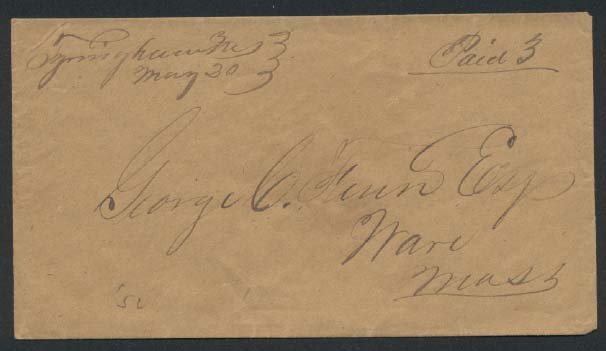 Tyringham Ms
May 20
Paid 3
George C. Fenn Esq
Ware
Mass
'52